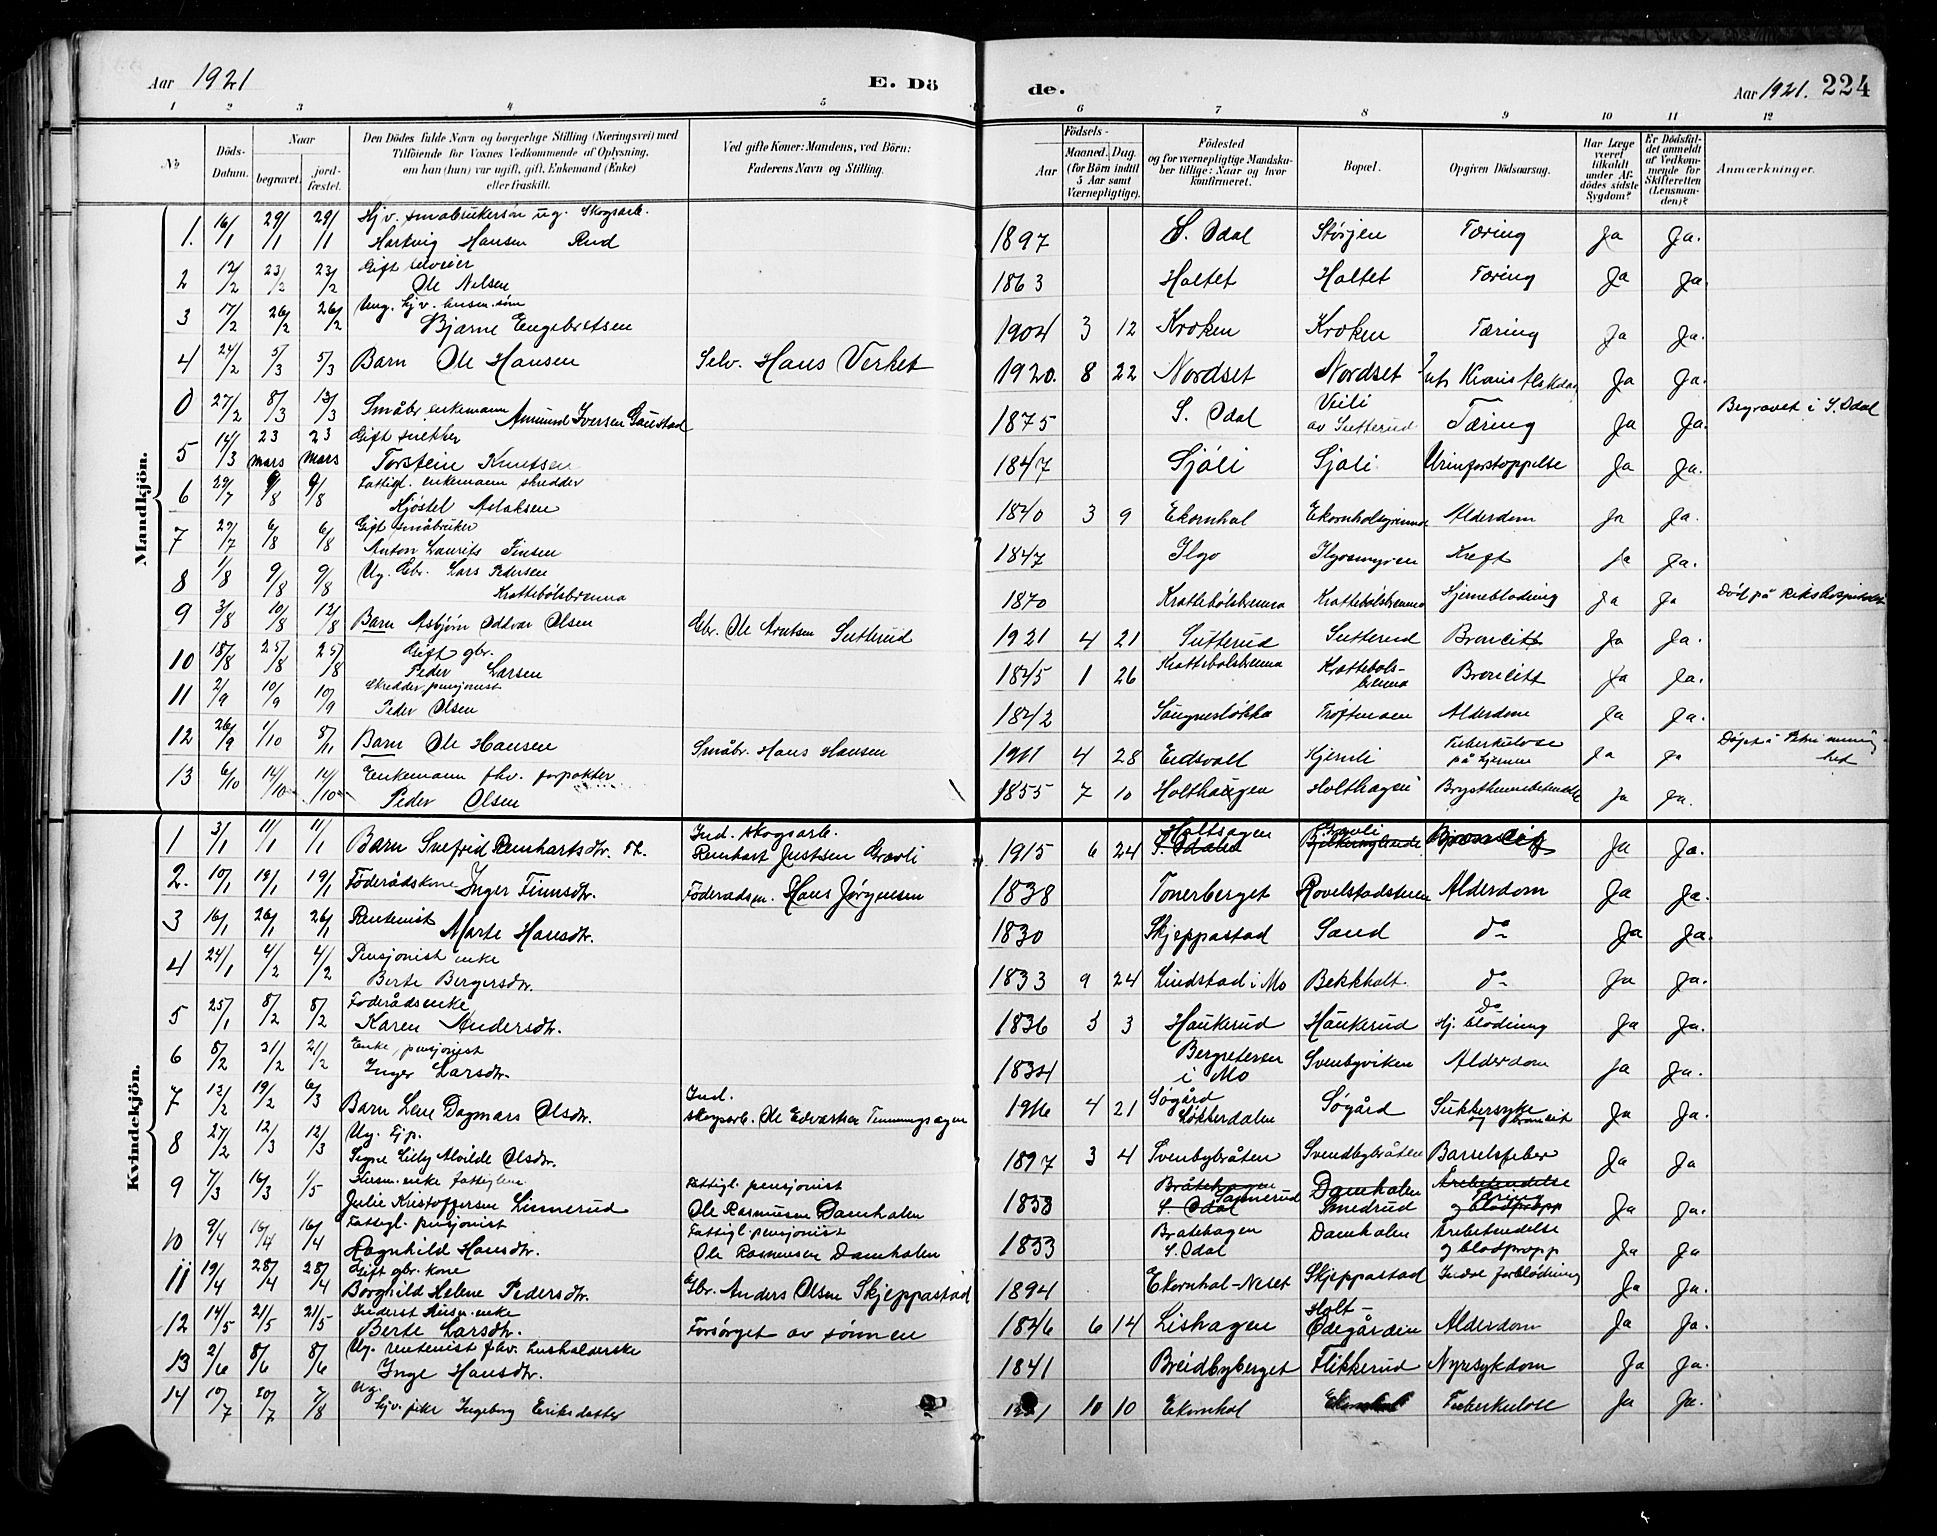 Aar 1921 E. Dö
de. Aar 1921. 224
1 2 3 4 5 6 7 8 9 10 11 12
No
Döds-Datum.
Naar
begravet.
jord-fæstet.
Den Dödes fulde Navn og borgerlige Stilling (Næringsvei) med
Tilföiende for Voxnes Vedkommende af Oplysning,
om han (hun) var ugift, gift, Enkemand (Enke)
eller fraskilt.
Ved gifte Koner: Mandens, ved Börn:
Faderens Navn og Stilling.
Födsels-
Aar
Maaned.
Dag.
(for Börn indtil
5 Aar samt
Værnepligtige).
Födested
og for værnepligtige Mandska-
ber tillige: Naar og hvor
konfirmeret.
Bopæl.
Opgiven Dödsaarsag.
Har Læge
været
tilkaldt
under Af-
dödes sidste
Sygdom?
Er Dödsfal-
det anmeldt
af Vedkom-
mende for
Skifteretten
(Lensman-
den)?
Anmærkninger.
Mandkjön.
1. 16/1 29/1 29/1 Hjv. småbrukersøn ug. Skogsarb.
Hartvig Hansen Rud 1897 S. Odal Størjen Tæring Ja Ja.
2 12/2 23/2 23/2 Gift selveier
Ole Nilsen 1863 Holtet Holtet Tæring Ja Ja.
3 17/2 26/2 26/2 Ung. hjv. husm. søn
Bjarne Engebretsen 1904 3 12 Kroken Kroken Tæring Ja Ja.
4 24/2 5/3 5/3 Barn Ole Hansen Selv. Hans Verket 1920. 8 22 Nordset Nordset Ja Ja.
0 27/2 8/3 13/3 Småbr. enkemann Amund Iversen Gaustad 1875 S. Odal Veili
av Sutterud Tæring Ja Ja. Begravet i S. Odal
5 14/3 23 mars 23 mars Gift snekker
Torstein Knutsen 1847 Sjøli Sjøli Urinforstoppelse Ja Ja.
6 29/7 6/8 6/8 Fattigl. enkemann skredder
Kjøstel Aslaksen 1840 3 9 Ekornhol Ekornholsgrund Alderdom Ja Ja.
7 29/7 6/8 6/8 Gift småbruker
Anton Laurits Finsen 1847 Ilgo Ilgosmyren Kreft Ja Ja.
8 1/8 9/8 9/8 Ug. Gbr. Lars Pedersen
Krattebølsbrenna 1870 Krattebølsbrenna Krattebolsbrenna Hjerneblødning Ja Ja Død på Rikshospitalet
9 3/8 10/8 12/8 Barn Asbjørn Oddvar Olsen Gbr. Ole Arntsen Sutterud 1921 4 21 Sutterud Sutterud Broncitt Ja Ja.
10 18/8 25/8 25/8 Gift gbr.
Peder Larsen 1845 1 26 Krattebolsbrenna Krattebols-
brenna Broncitt Ja Ja.
11 2/9 10/9 10/9 Skredder, pensjonist
Peder Olsen 1842 Sangnesløkka Troftmoen Alderdom Ja Ja.
12 26/9 1/10 8/11 Barn Ole Hansen Småbr. Hans Hansen 1911 4 28 Eidsvoll Hjemli Tuberkulose
på hjernen Ja Ja
13 6/10 14/10 14/10 Enkemann fhv. forpakter
Peder Olsen 1855 7 10 Holthaugen Holthagen Brysthinnebetendelse Ja Ja.
Kvindekjön.
1 3/1 11/1 11/1 Barn Svefrid Reinhartsdtr. Ind. skogsarb.
Reinhart Justsen Gravli 1915 6 24 Holtsagen
S. Odalen Gravli Broncitt Ja Ja.
2. 10/1 19/1 19/1 Föderådskone Inger Finnsdtr. Föderadsm. Hans Jørgensen 1838 Tonerberget Rovelstadstuen Alderdom Ja Ja.
3 16/1 26/1 26/1 Rentenist
Marte Hansdtr. 1830 Skjeppastad Sand do Ja Ja.
4 24/1 4/2 4/2 Pensjonist enke
Berte Bergersdtr. 1833 9 24 Lindstad i Mo Bekkholt. do Ja Ja.
5 25/1 8/2 8/2 Foderådsenke
Karen Andersdtr. 1836 5 3 Haukerud Haukerud Do
Hj. blødning Ja Ja.
6 8/2 21/2 21/2 Enke, pensjonist
Inger Larsdtr. 1834 Bergpetersen
i Mo Svenbyviken Alderdom Ja Ja.
7 12/2 19/2 6/3 Barn Lene Dagmars Olsdtr. Ind.
skogsarb. Ole Edvartsen Tømmingsagen 1916 4 21 Søgård
Løkkerdalen Søgård Sukkersyke
og broncit Ja Ja.
8 27/2 12/3 12/3 Ug. Tjp.
Signe Lilly Alvilde Olsdtr. 1897 3 4 Svenbybråten Svendbybråten Barselfeber Ja Ja
9 7/3 16/3 1/5 Husm. enke fattiglem
Julie Kristoffersen Linnerud Fattigl. pensjonist
Ole Rasmusen Damholen 1838 Bråtehagen
S. Odal Sannerud Damholen
Smedrud Årebetendelse
Tæring
og blodpropp Ja Ja.
10 9/4 16/4 16/4 Fattigl. pensjonist
Ragnhild Hansdtr. Fattigl. pensjonist
Ole Rasmusen Damholen 1833 Bratehagen
S. Odal Damholen Årebetendelse
og blodpropp Ja Ja
11 19/4 28/4 28/4 Gift gbr. kone
Borghild Helene Pedersdtr. Gbr. Anders Olsen Skjeppastad 1894 Ekornhol-Neset Skjeppastad Indre forblödning Ja Ja.
12 14/5 21/5 21/5 Inderst husm. enke
Berte Larsdtr. Forsörget av sønnen 1846 6 14 Lishagen Holt-
Ödegården Alderdom Ja Ja.
13 2/6 8/6 8/6 Ug. rentenist fhv. husholderske
Inge Hansdtr. 1841 Breidbyberget Flikkerud Nyresykdom Ja Ja.
14 10/7 20/7 /8 Ug.
hjv. pike Ingeborg Eriksdatter 10 10 Ekornhol Ekornhol Tuberkulose Ja Ja.